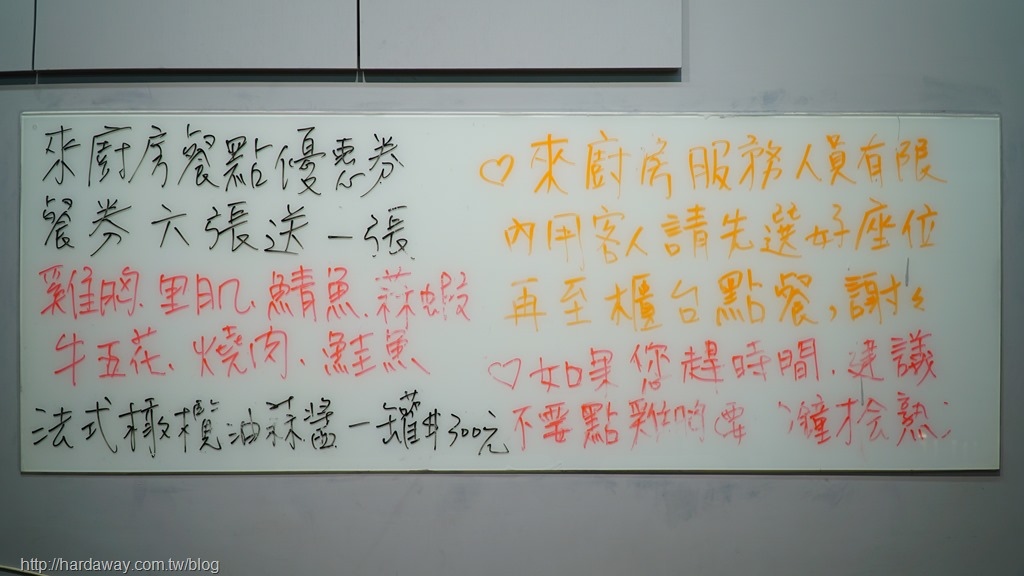 來廚房餐點優惠券
餐券六張送一張
雞胸、里肌、鯖魚、蒜蝦
牛五花、燒肉、鮭魚
法式橄欖油蒜醬一罐$300元
♡來廚房服務人員有限
內用客人請先選好座位
再至櫃台點餐,謝々
♡如果您趕時間,建議
不要點雞胸 要 鐘才会熟
http://hardaway.com.tw/blog